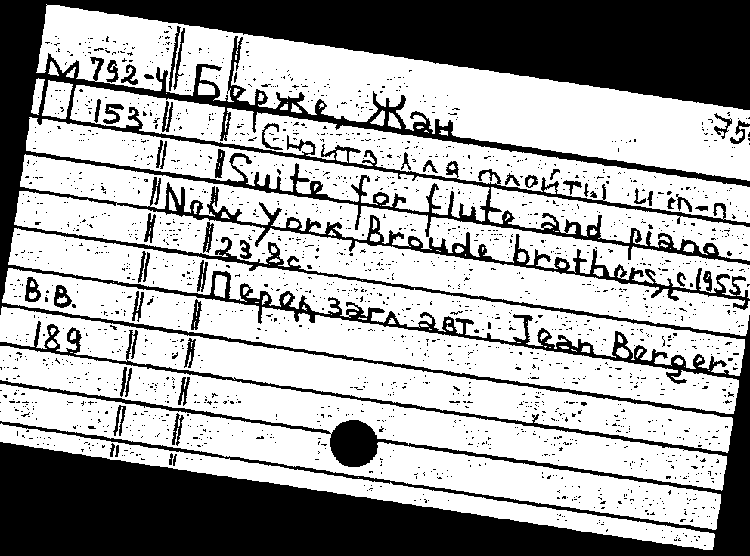 М 792-4 Берже, Жан 75
153
Сюита для флейты и ф-п.
Suite for flute and piano.
New York, Broude brothers, c.1955,
23, 8 с.
Перед загл. авт.: Jean Berger.
В.В.
189